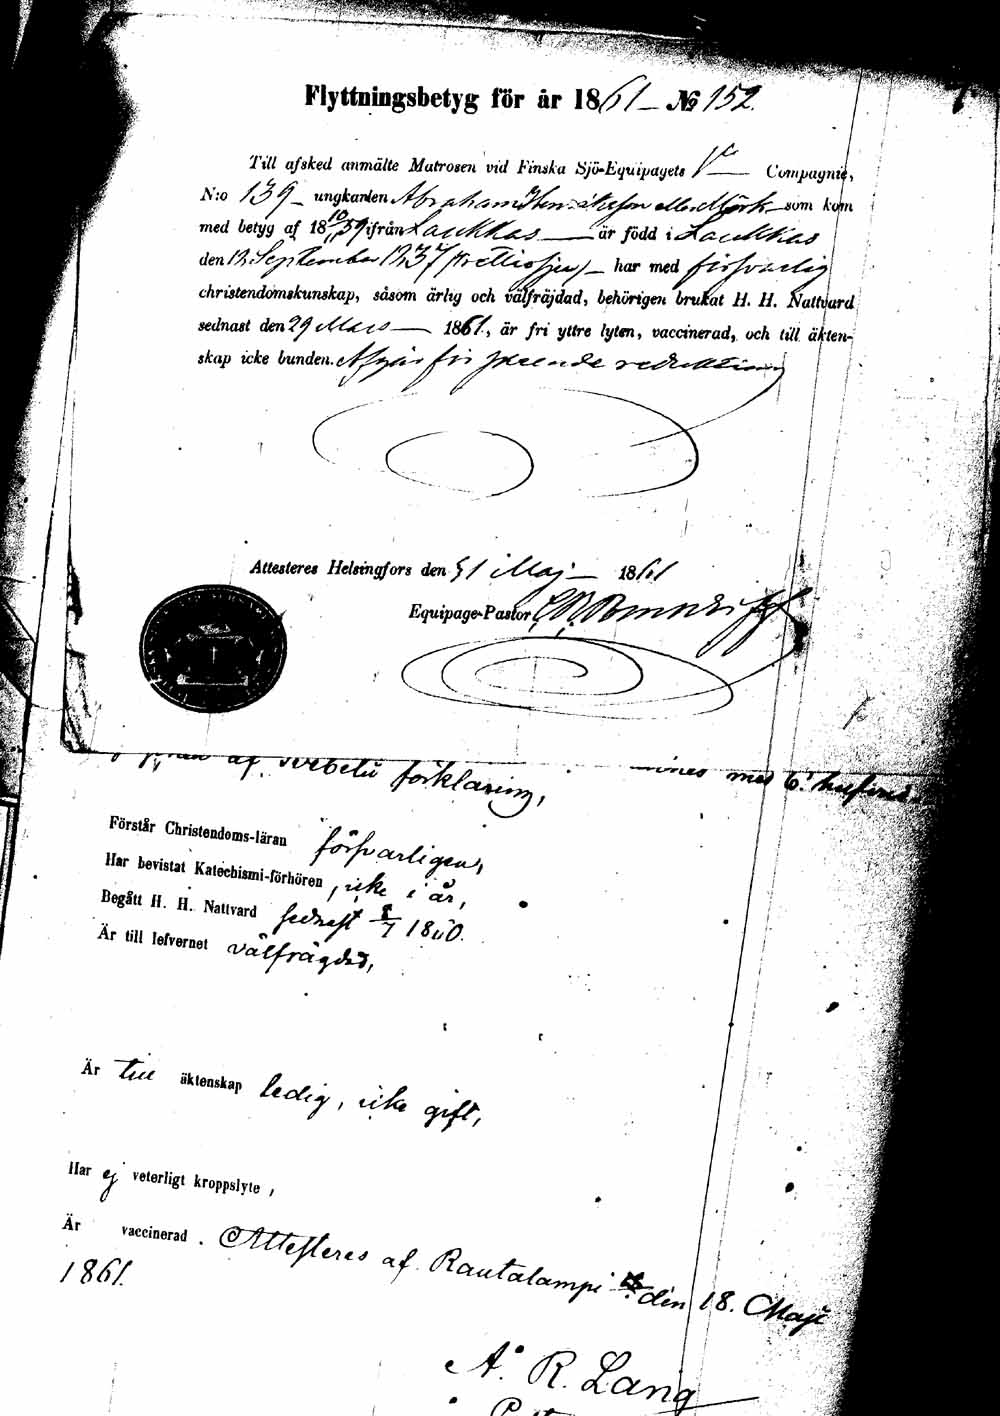 Flyttningsbetyg för år 1861 — No 152.
Till afsked anmälte Matrosen vid Finska Sjö-Equipagets 1 Compagnie,
N:o 139 ungkarlen Abraham Mörk som kom
med betyg af 18 10/11 59 ifrån Laukkas är född i Laukkas
den 13 September 1837 (trettiosju) har med försvarlig
christendomskunskap, såsom ärlig och välfräjdad, behörigen brukat H. H. Nattvard
sednast den 29 Mars 1861, är fri yttre lyten, vaccinerad, och till äkten-
skap icke bunden. Afgår för
Attesteres Helsingfors den 31 Maj 1861
Equipage-Pastor
af förklaring,
med 6
Förstår Christendoms-läran försvarligen,
Har bevistat Katechismi-förhören, icke i år,
Begått H. H. Nattvard sednast 1860.
Är till lefvernet välfrägdad,
Är till äktenskap ledig, icke gift,
Har ej veterligt kroppslyte,
Är vaccinerad. Attesteres af Rautalampi den 18. Maji
1861.
A. R. Lang